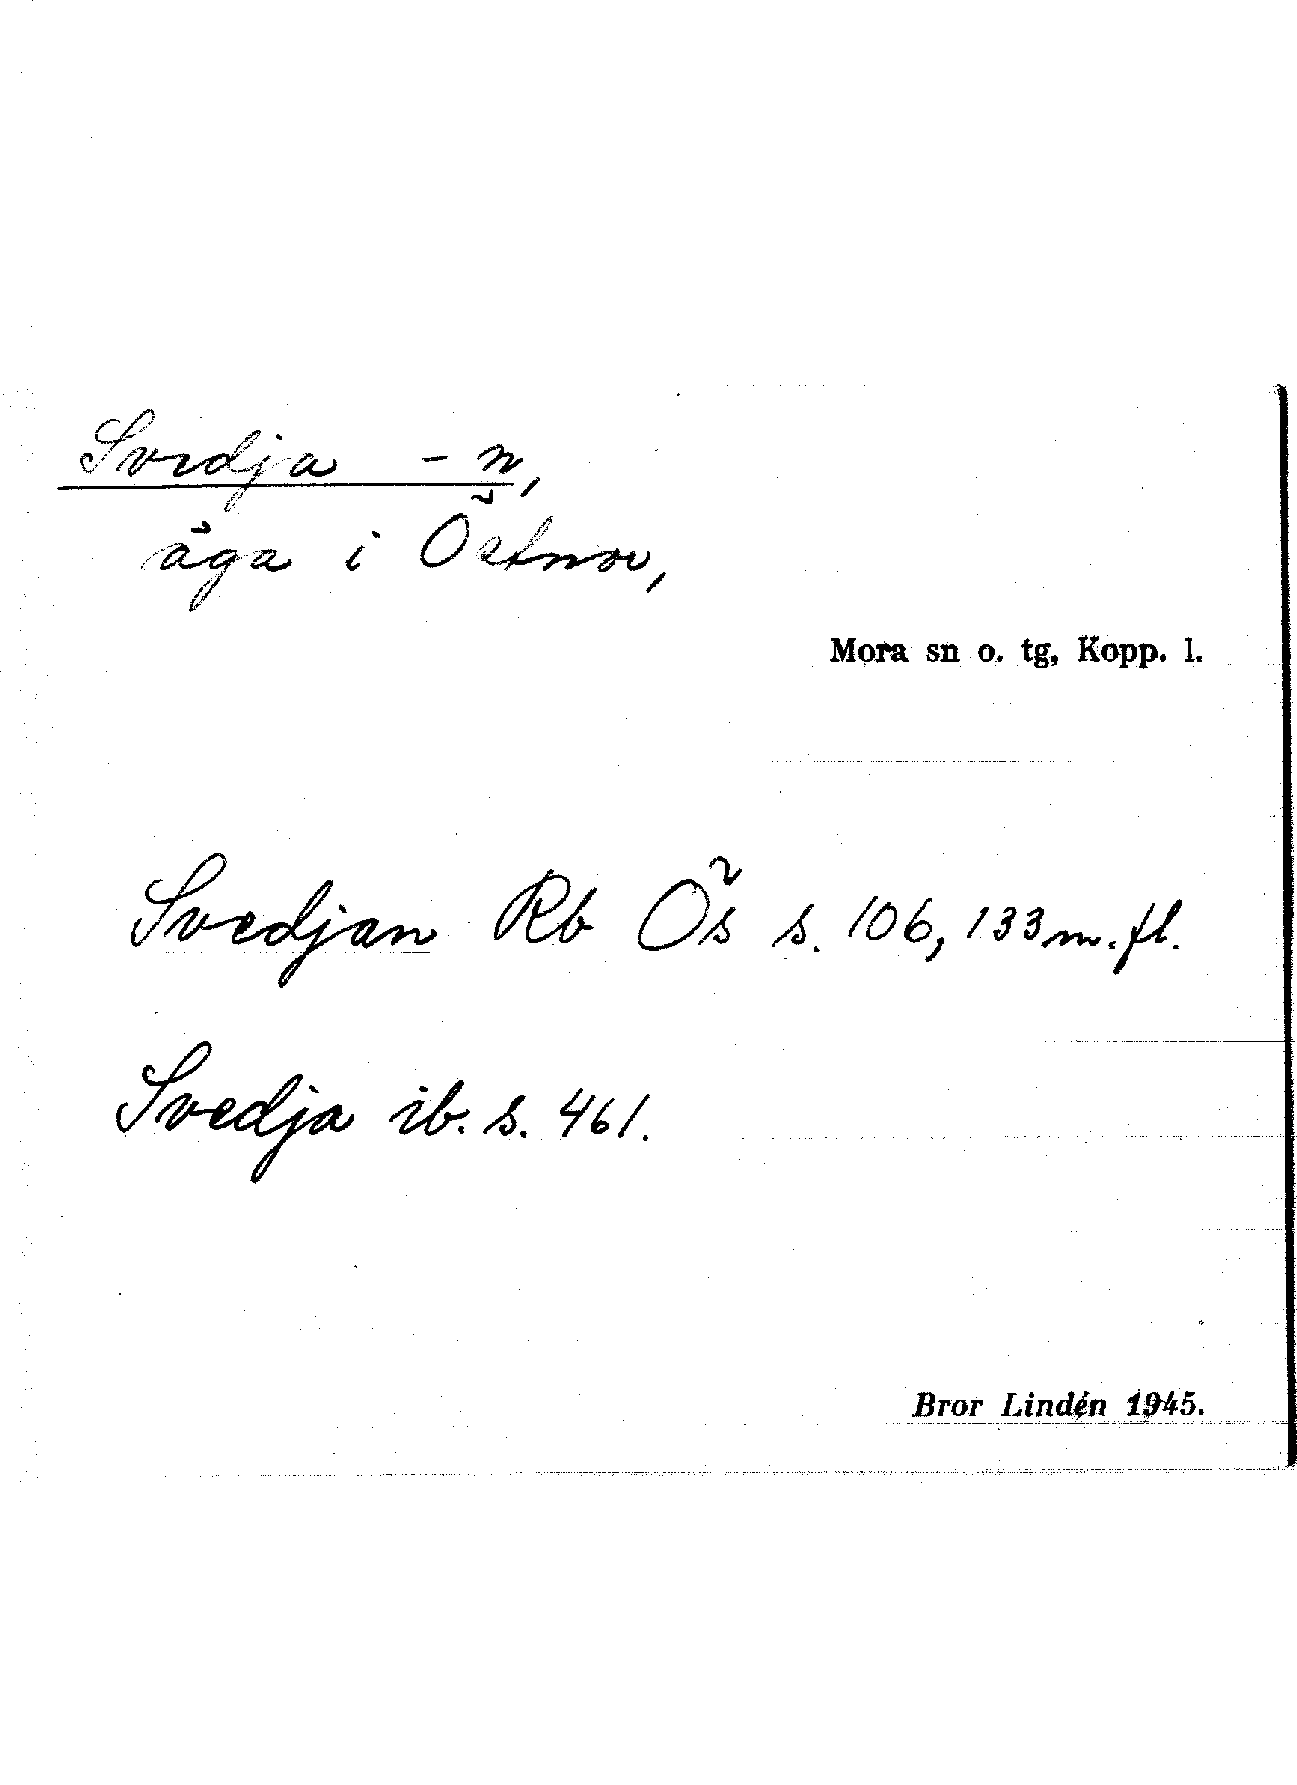 Svedja - n,
äga i Östnor,
Mora sn o. tg, Kopp. l.
Svedjan Rb Ös s. 106, 133 m. fl.
Svedja ib. s. 461.
Bror Lindén 1945.